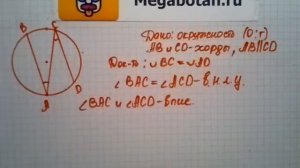 Megabotan.ru
Дано: окружность (O;r)
AB и CD - хорды, AB||CD
B
C
Док-ть: ∪BC = ∪AD
∠BAC = ∠ACD - в.н.л.у.
A
D
∠BAC и ∠ACD - впис.